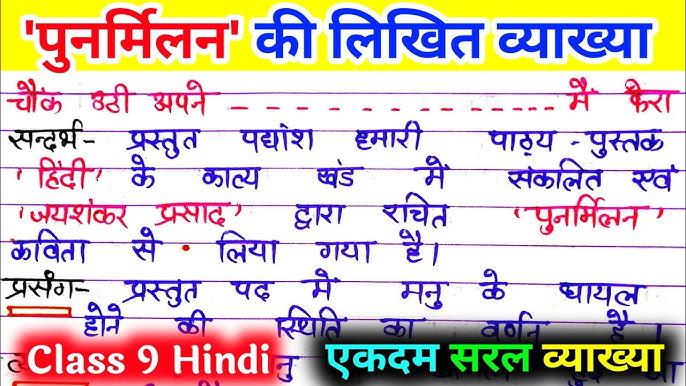 'पुनर्मिलन' की लिखित व्याख्या
चौंक उठी अपने - - - - - - - - - - - - - - में फेरा
सन्दर्भ- प्रस्तुत पद्यांश हमारी पाठ्य-पुस्तक
'हिंदी' के काव्य खंड में संकलित एवं
'जयशंकर प्रसाद' द्वारा रचित 'पुनर्मिलन'
कविता से लिया गया है।
प्रसंग- प्रस्तुत पद में मनु के घायल
होने की स्थिति का वर्णन है।
Class 9 Hindi एकदम सरल व्याख्या